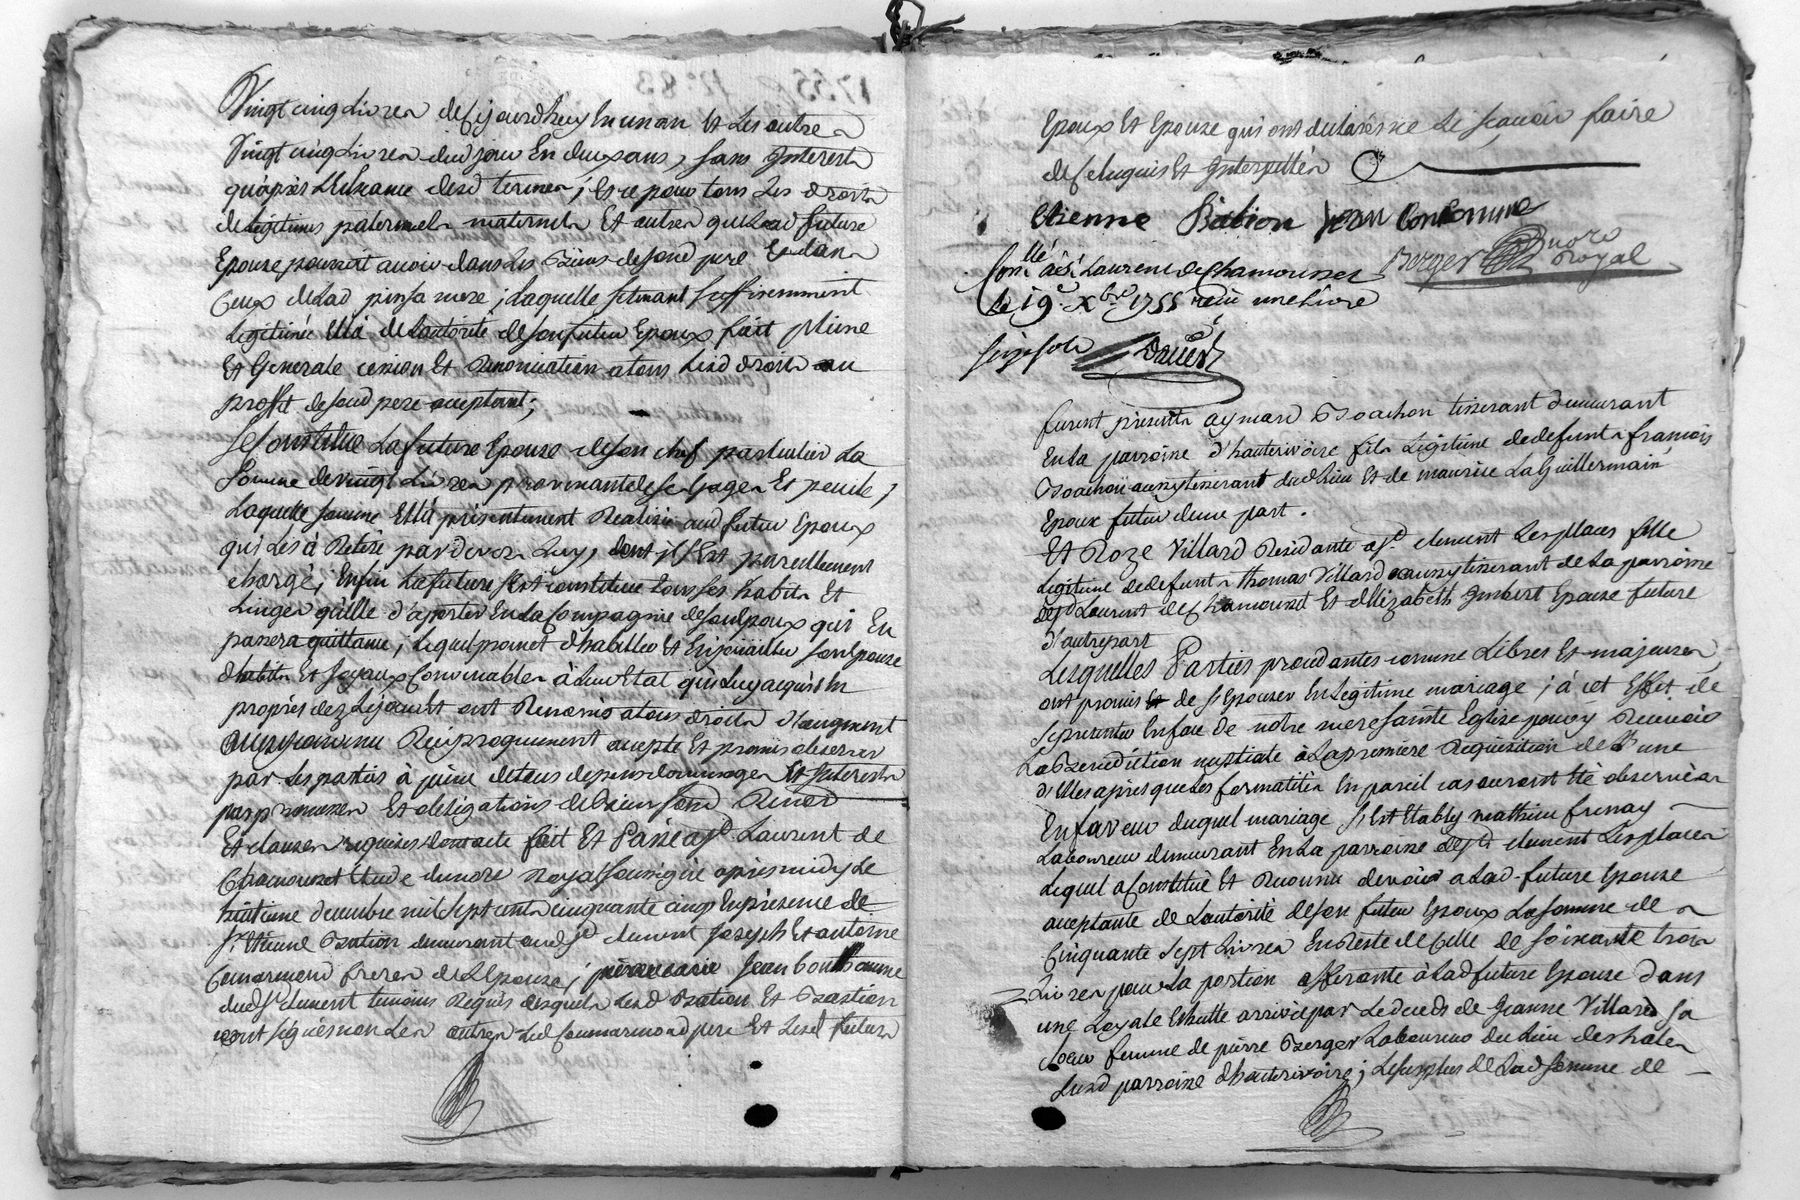 Vingt cinq Livres de ce jourdhuy en un an Et Les autres
Vingt cinq Livres dud jour En deux ans, sans Interests
qu'après L'Echeance desd termes; et ce pour tous Les droits
de Legitimes paternels maternels Et autres que Lad future
Epouse pouvoit avoir dans Les Biens de sond pere Et dans
Ceux de Lad sa mere; Laquelle se tenant suffisemment
Legitimée Elle de Lautorité de son futur Epoux fait pleine
Et Generale cession Et Renonciation a tous Lesd droits au
proffit de sond pere acceptant;
Se Constitue La future Epouse de son chef particulier La
Somme de vingt Livres provenant de ses Gages Et pecule;
Laquelle somme Elle a présentement Realisée aud futur Epoux
qui Les à Retiré par devers Luy, dont il s'Est pareillement
chargé, Enfin La future s'est constituée tous ses habits Et
Linges qu'elle d'aporter En La Compagnie de sond Epoux qui En
passera quittance; Lequel promet d'habiller Et Enjouailler sond Epouse
d'habits Et Joyaux Convenables à Leur Etat qui Luy acquis En
propres dez Lesquels ont Renoncé a tous droits d'augment
Reciproquement accepté Et promis observer
par Les parties à peine de tous depens dommages Et Interests
par promesses Et obligations de Biens
Et clauses requises dont acte fait Et Passé a St Laurent de
Chamousset Etude du nore Royal soussigné après midy Le
huitieme decembre mil sept cents cinquante cinq En présence de
Sr Etienne Bation demeurant aud St clement Joseph Et antoine
Coumarmond freres de L'Epouse, Jean bonhomme
dud St clement temoins Requis desquels Lesd Bation Et
ont signés non Les autres Led Coumarmond pere Et Lesd futurs
Epoux Et Epouse qui ont declarés ne Le sçavoir faire
de ce Enquis Et Interpellés
Etienne Bation Jean Bonhomme
Berger nore Royal
Conllé à St Laurent de Chamousset
Le 19e Xbre 1755 reçu une Livre
seize sols
furent présents aymard Bouchon tisserant demeurant
En La parroisse d'hauterivoire fils Legitime de defunts françois
Bouchon aussy tisserant dud Lieu Et de maurise La Guillermain
Epoux futur d'une part.
Et Roze Villard Residante a St clement Les places fille
Legitime de defunts thomas Villard aussy tisserant de La parroisse
de St Laurent de Chamousset Et d'Elizabeth Imbert Epouse future
d'autre part
Lesquelles Parties procedantes comme Libres Et majeures
ont promis de s'Epouser En Legitime mariage; à cet Effet de
se presenter En face de notre mere sainte Eglise pour y Recevoir
La Benediction nuptiale à La premiere Requisition de L'une
d'Elles après que Les formalités En pareil cas auront Eté observées
En faveur duquel mariage s'Est Etably mathieu frenay
Laboureur demeurant En La parroisse de St clement Les places
Lequel a Constitué Et Reconnu devoir a Lad future Epouse
acceptante de L'autorité de son futur Epoux La somme de
Cinquante sept Livres En Reste de Celle de soixante trois
Livres pour La portion afferante à Lad future Epouse dans
une Loyale Echutte arrivée par Le deceds de Jeanne Villard sa
soeur femme de pierre Berger Laboureur du Lieu des hales
Susd parroisse d'hauterivoire; Le surplus de Lad somme de